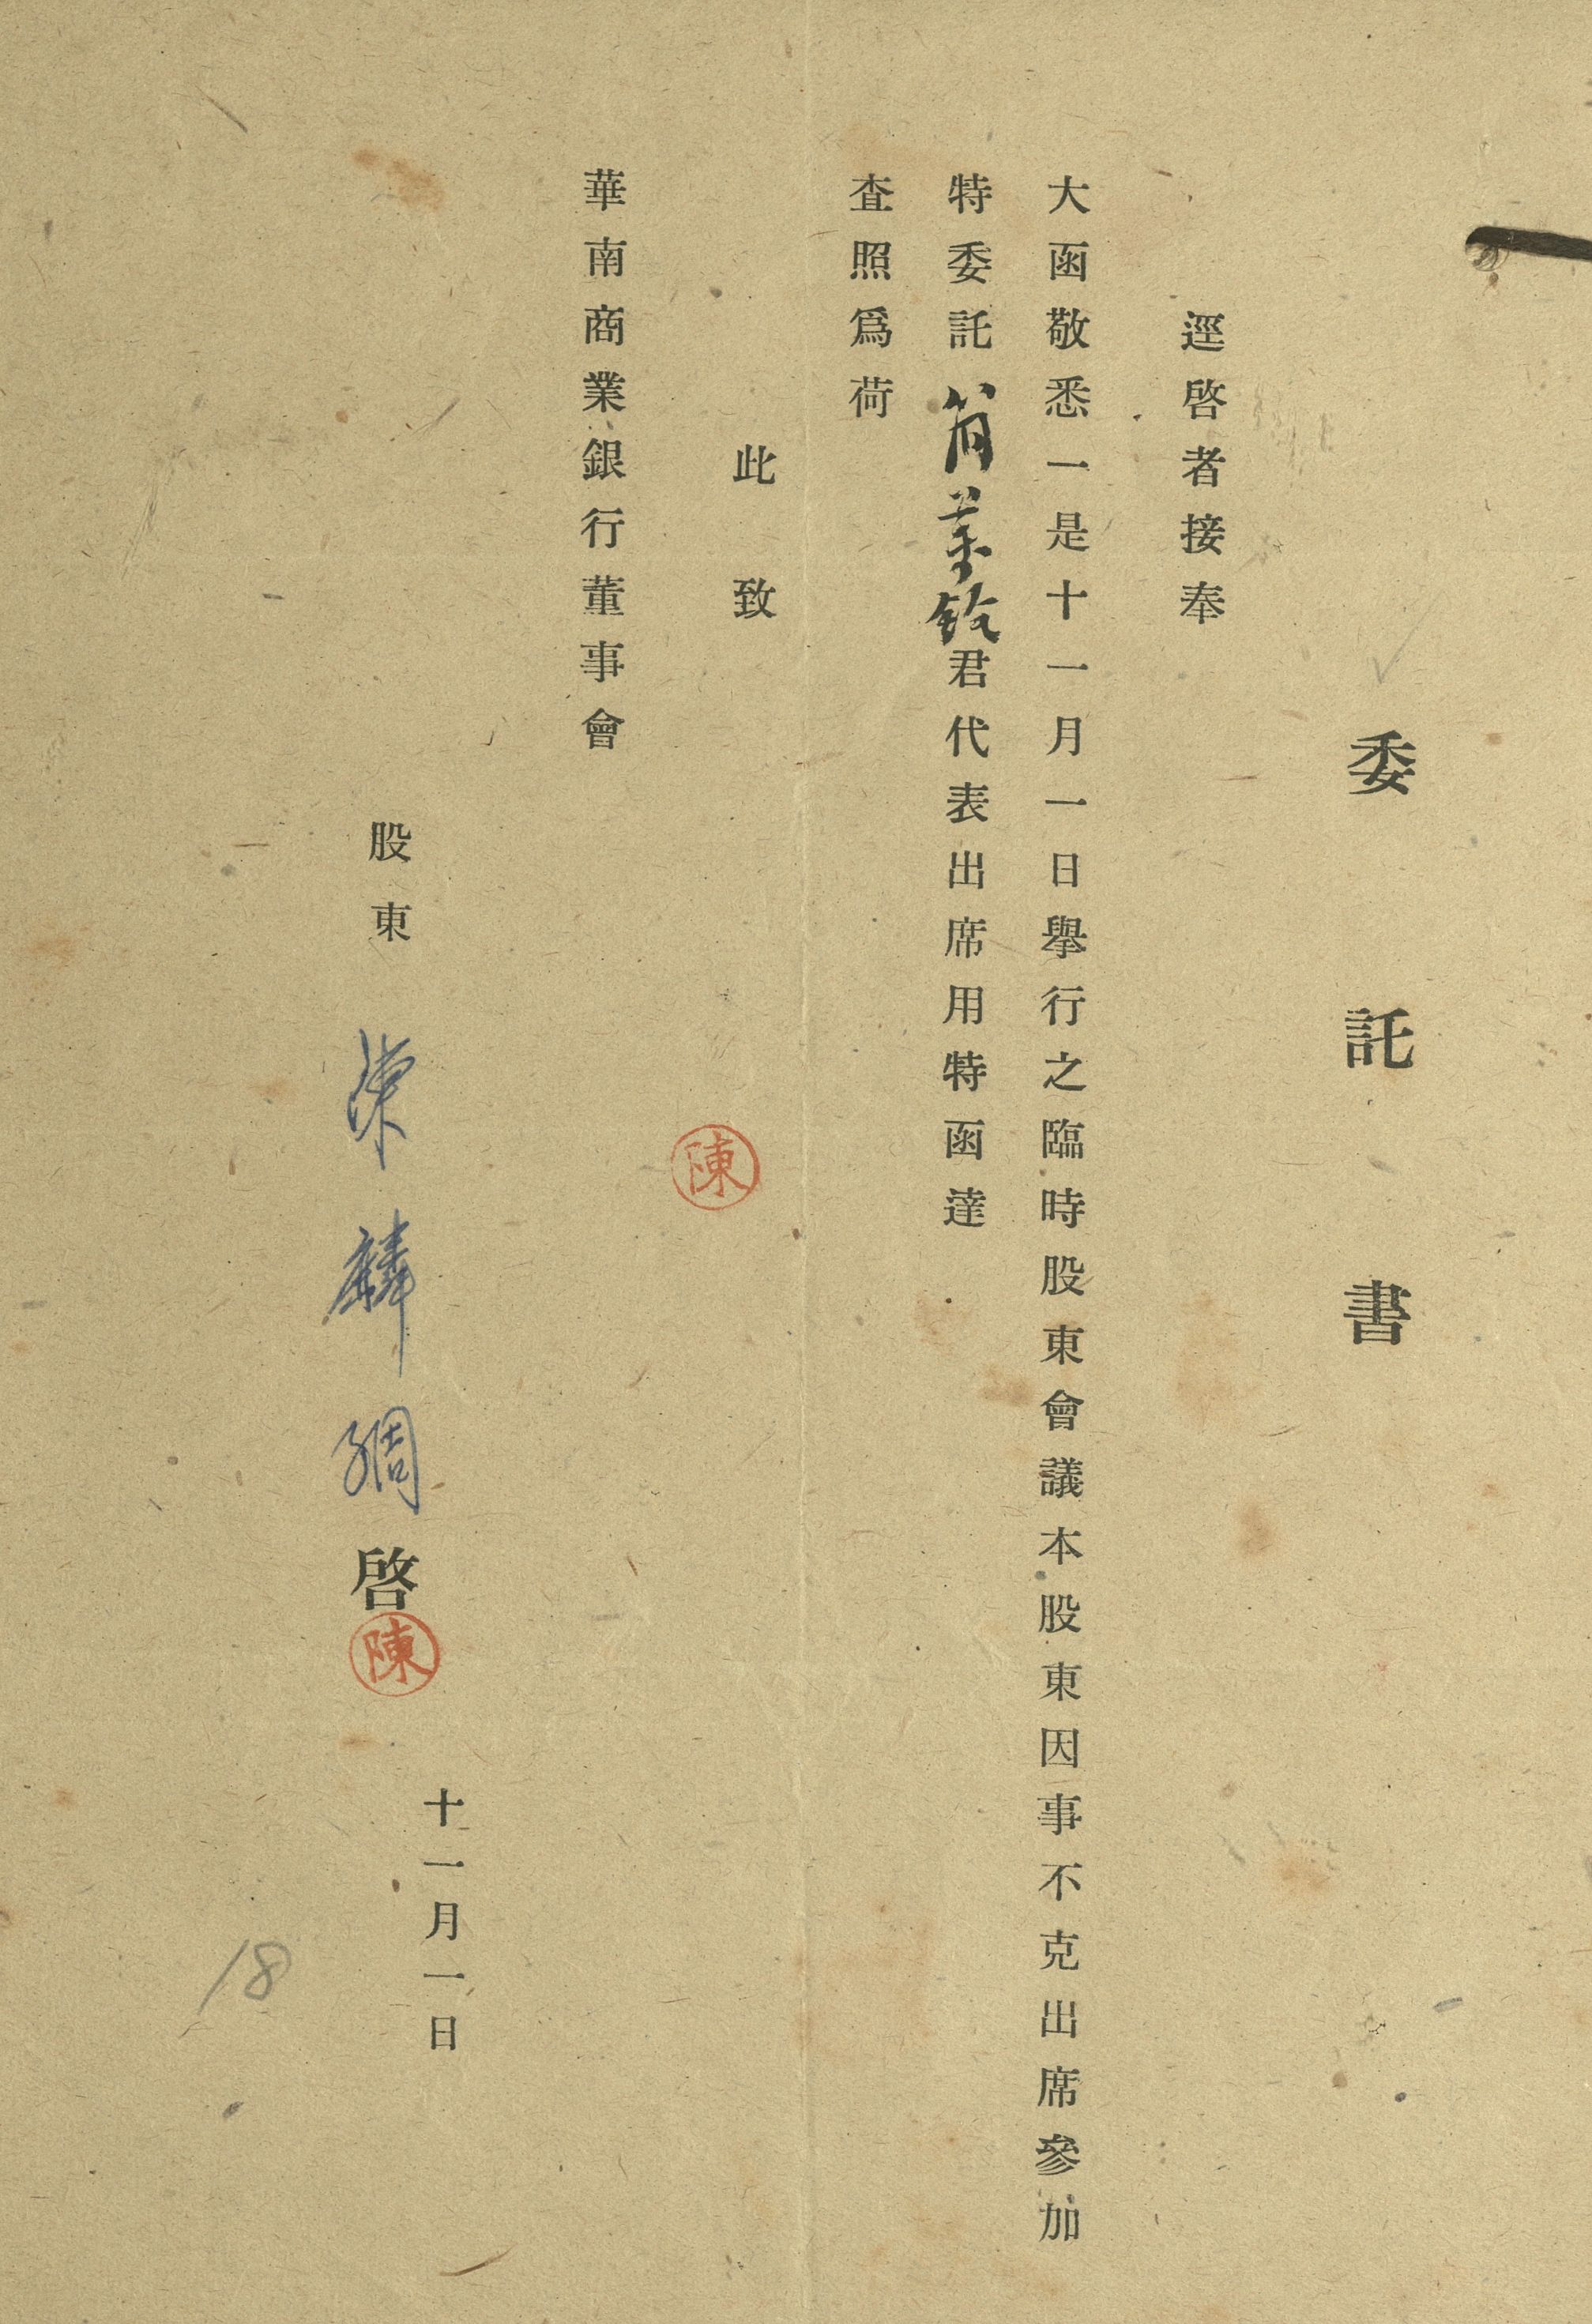 委託書
逕啓者接奉
大函敬悉一是十一月一日舉行之臨時股東會議本股東因事不克出席參加
特委託君代表出席用特函達
査照爲荷
此致
陳
華南商業銀行董事會
十一月一日
股東 陳麟綢啓
陳
18